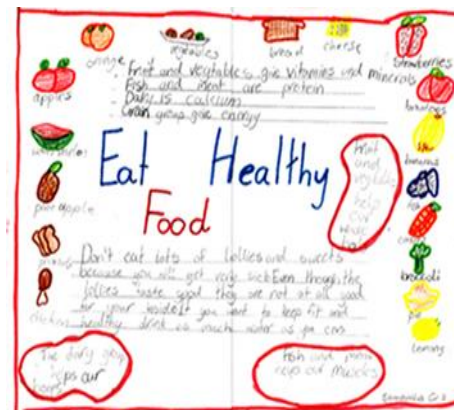 orange
vegetables
bread
cheese
strawberries
Fruit and vegtables give vitamins and minerals
Fish and meat are protein
Dairy is calcium
Grain group give energy
apples
tomatoes
Eat Healthy
Food
watermelon
bananas
fruit
and
vegtables
help
our
whole
body
fish
carrots
pineapple
broccoli
pie
lemons
chicken
Don't eat lots of lollies and sweets
because you will get very sick Even though the
lollies taste good they are not at all good
for your body If you want to keep fit and
healthy drink as much water as you can
The dairy group
helps our
bones
fish and
helps our muscles